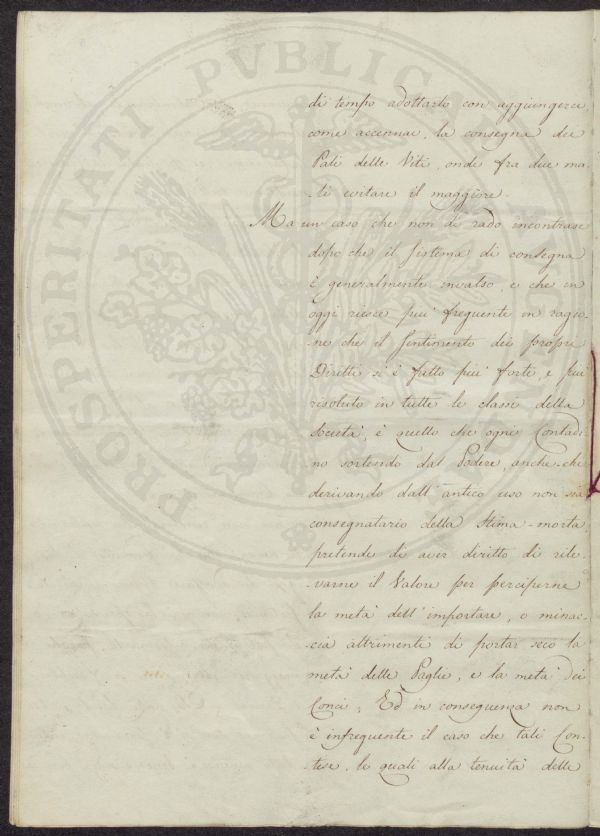 di tempo adottarlo con aggiungerci
come accennai, la consegna dei
Pali delle Viti, onde fra due ma-
-li evitare il maggiore.
Ma un caso che non di rado incontrasi
dopo che il Sistema di consegna
è generalmente invalso, e che in
oggi riesce più frequente in ragio-
-ne che il Sentimento dei propri
Diritti si è fatto più forte, e più
risoluto in tutte le classi della
Società, è quello che ogni Contadi-
no sortendo dal Podere, anche che
derivando dall'antico uso non sia
consegnatario della Stima-morta
pretende di aver diritto di rile-
-varne il Valore per perciperne
la metà dell'importare, o minac-
-cia altrimenti di portar seco la
metà delle Paglie, e la metà dei
Conci; Ed in conseguenza non
è infrequente il caso che tali Con-
-tese, le quali alla tenuità delle
PROSPERITATI PVBLICAE AVGENDAE